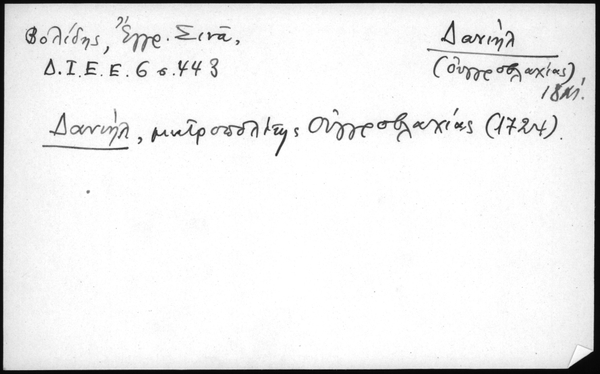 Βολίδης, Ἔγγρ. Σινᾶ,
Δ.Ι.Ε.Ε. 6 σ. 443
Δανιήλ
(Οὑγγροβλαχίας)
ΙΒΝ΄.
Δανιήλ, μητροπολίτης Οὑγγροβλαχίας (1724).